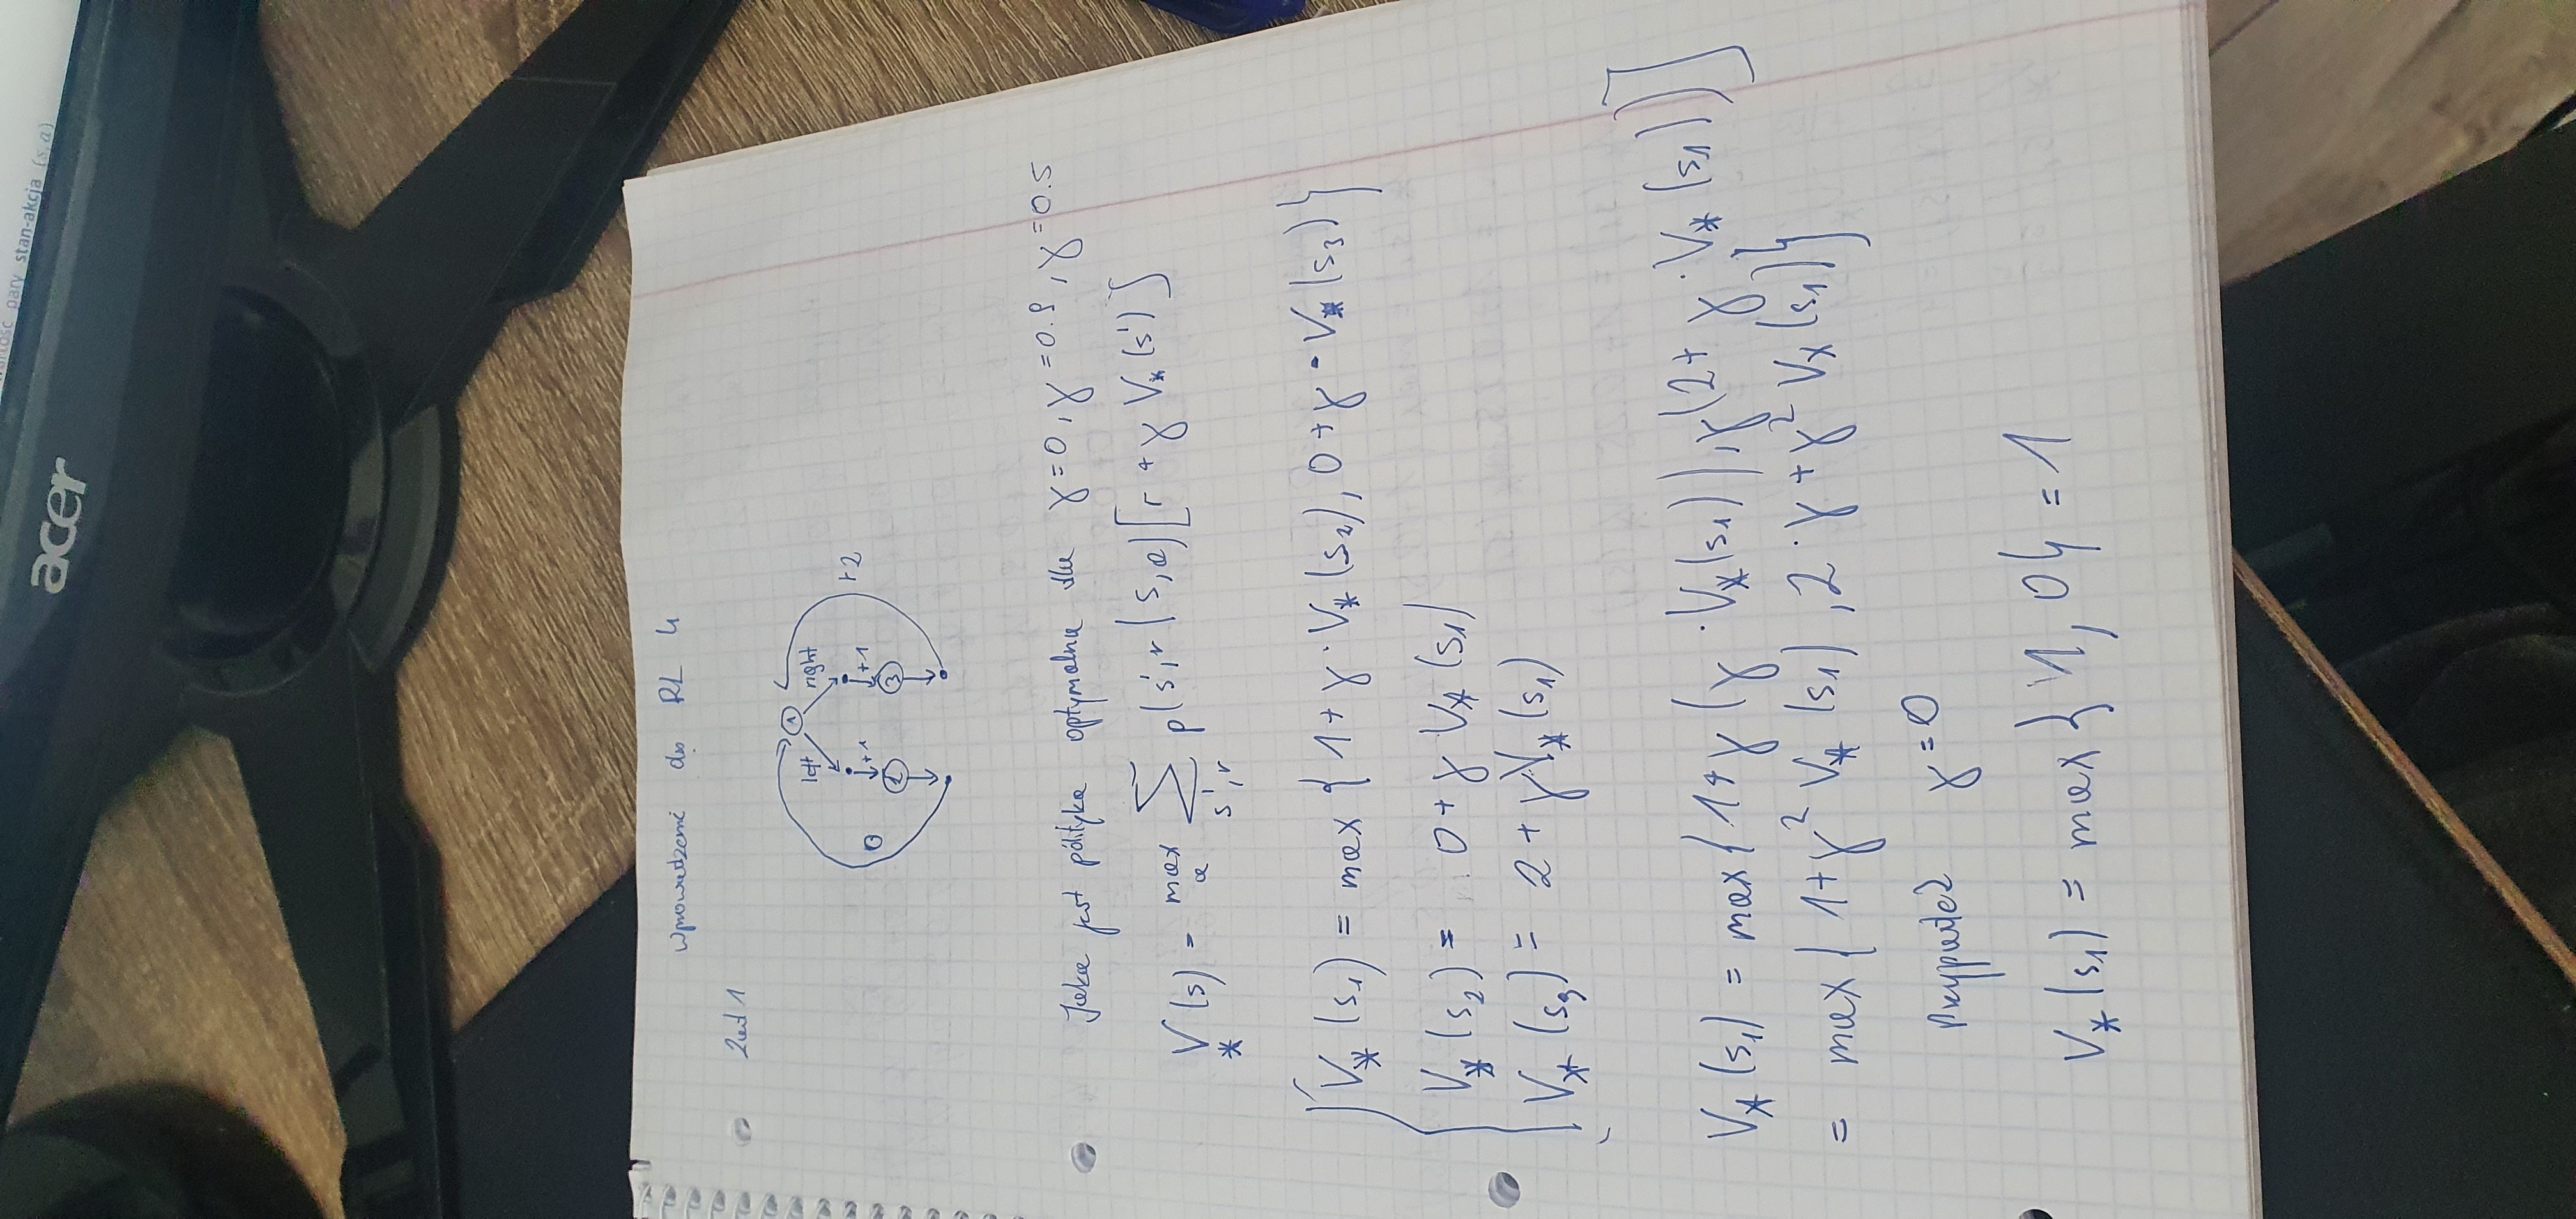 wartość pary stan-akcja (s,a)
acer
Wprowadzenie do RL 4
Zad 1
1
left right
+1 +1
0 2 3 +2
Jaka jest polityka optymalna dla γ=0, γ=0.9, γ=0.5
V*(s) = max a Σ s',r p(s',r|s,a)[r + γ V*(s')]
V*(s1) = max{1+γ·V*(s2), 0+γ·V*(s3)}
V*(s2) = 0+γ V*(s1)
V*(s3) = 2+γV*(s1)
V*(s1) = max{1+γ(γ·V*(s1)), γ(2+γ·V*(s1))]
= max{1+γ² V*(s1), 2·γ+γ² V*(s1)}
Przypadek γ=0
V*(s1) = max{1, 0} = 1